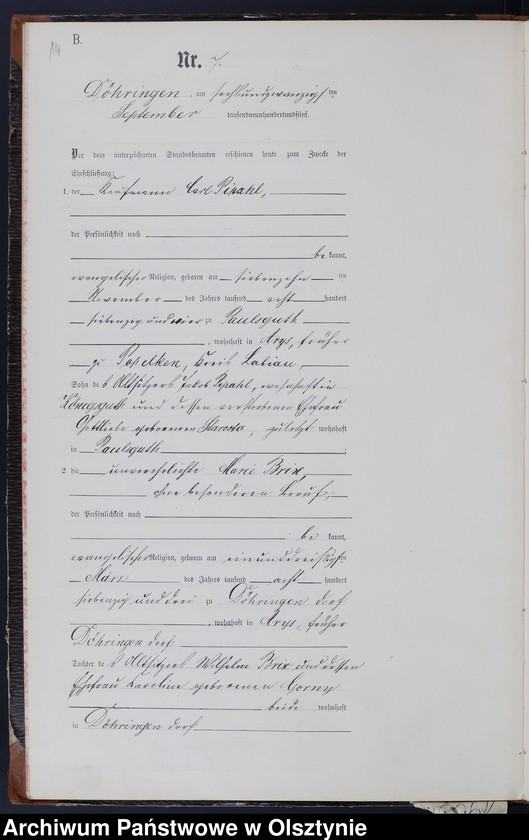 14
B.
Nr. 7.
Döhringen, am sechsundzwanzigsten
September tausendneunhundertundfünf.
Vor dem unterzeichneten Standesbeamten erschienen heute zum Zwecke der
Eheschließung:
1. der Kaufmann Carl Pipahl,
der Persönlichkeit nach
be kannt,
evangelischer Religion, geboren am siebenzehn ten
November des Jahres tausend acht hundert
siebenzig und vier zu Paulsguth
, wohnhaft in Arys, früher
zu Popelken, Kreis Labiau,
Sohn des Altsitzers Jakob Pipahl, wohnhaft in
Königsguth und dessen verstorbenen Ehefrau
Gottliebe geborenen Starosta, zuletzt wohnhaft
in Paulsguth
2. die unverehelichte Marie Brix,
ohne besonderen Beruf,
der Persönlichkeit nach
be kannt,
evangelischer Religion, geboren am einunddreißigsten
März des Jahres tausend acht hundert
siebenzig und drei zu Döhringen dorf
, wohnhaft in Arys, früher
Döhringen dorf
Tochter des Altsitzers Wilhelm Brix und dessen
Ehefrau Karoline geborenen Gorny
beide wohnhaft
in Döhringen dorf.
Archiwum Państwowe w Olsztynie